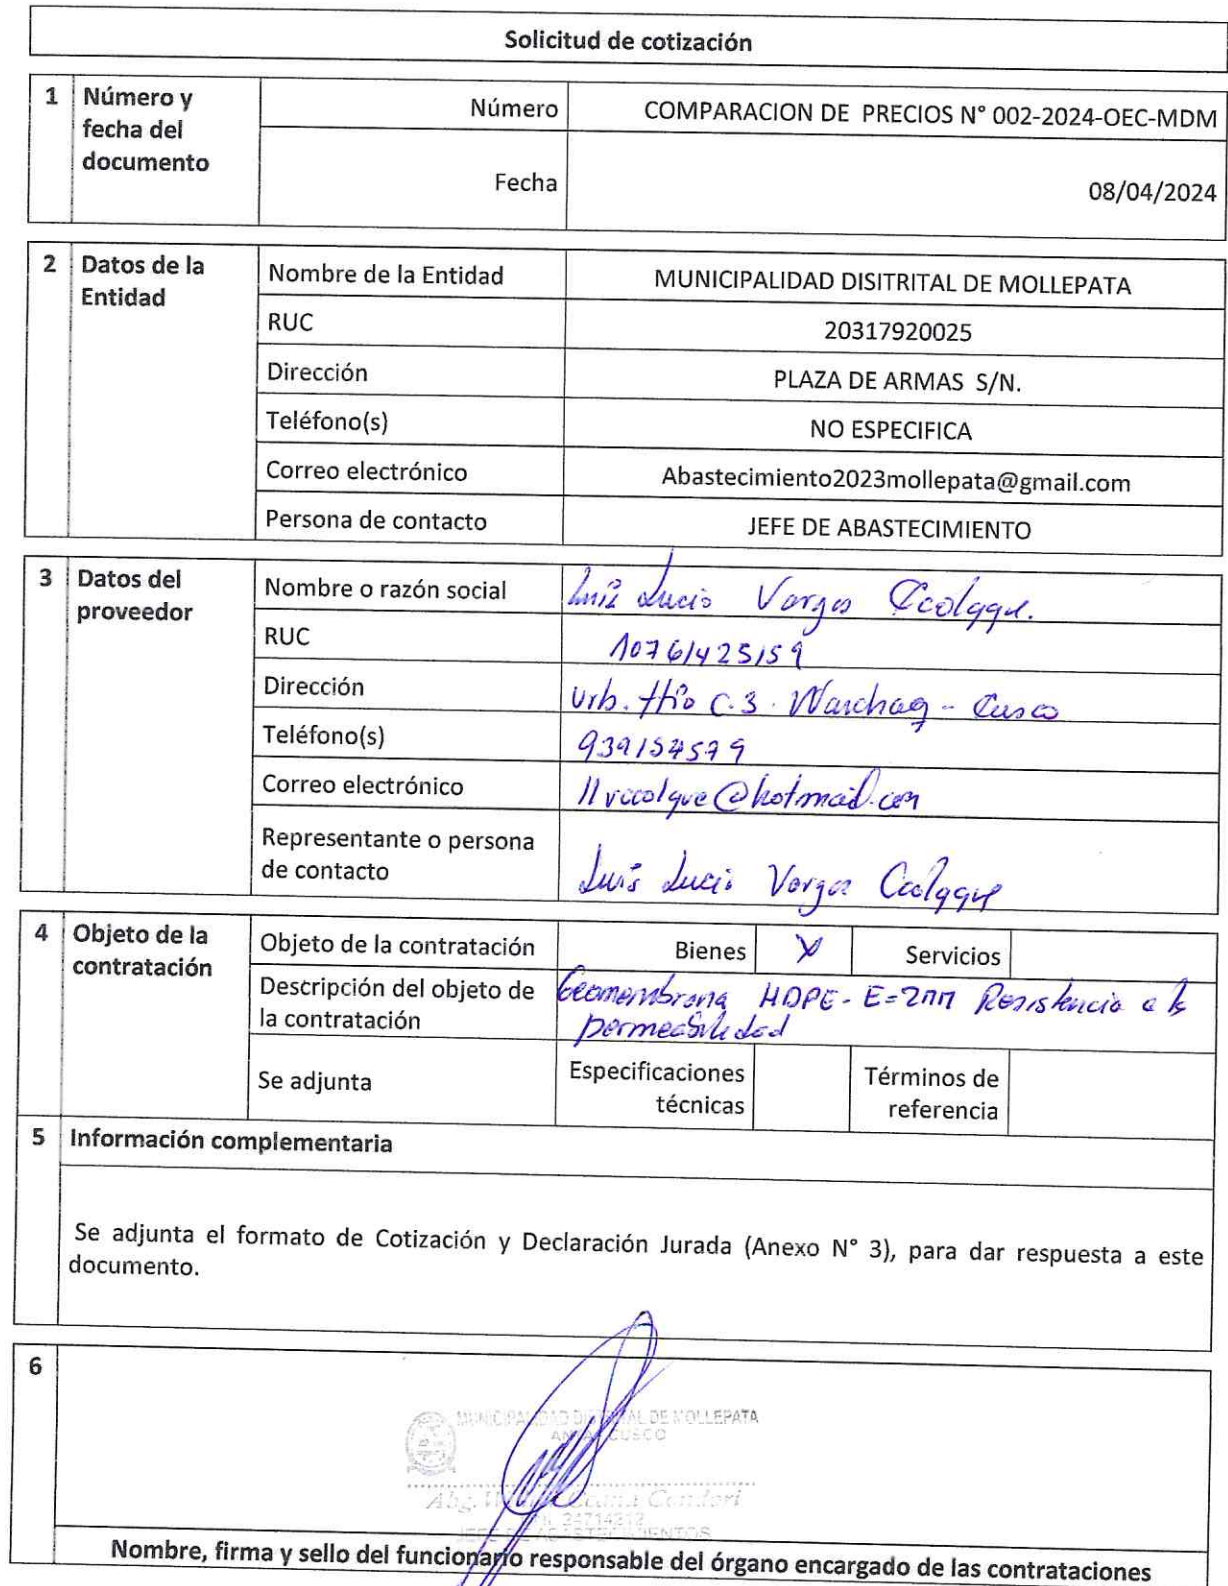 Solicitud de cotización
1 Número y fecha del documento
Número COMPARACION DE PRECIOS N° 002-2024-OEC-MDM
Fecha 08/04/2024
2 Datos de la Entidad
Nombre de la Entidad MUNICIPALIDAD DISITRITAL DE MOLLEPATA
RUC 20317920025
Dirección PLAZA DE ARMAS S/N.
Teléfono(s) NO ESPECIFICA
Correo electrónico Abastecimiento2023mollepata@gmail.com
Persona de contacto JEFE DE ABASTECIMIENTO
3 Datos del proveedor
Nombre o razón social Luis Lucio Vargas Ccolqque.
RUC 10761425159
Dirección Urb. Ttio C.3. Wanchaq - Cusco
Teléfono(s) 939154579
Correo electrónico llvccolque@hotmail.com
Representante o persona de contacto Luis Lucio Vargas Ccolqque
4 Objeto de la contratación
Objeto de la contratación Bienes X Servicios
Descripción del objeto de la contratación Geomembrana HDPE - E=2mm Resistencia a la permeabilidad
Se adjunta Especificaciones técnicas Términos de referencia
5 Información complementaria
Se adjunta el formato de Cotización y Declaración Jurada (Anexo N° 3), para dar respuesta a este
documento.
6
MUNICIPALIDAD DISTRITAL DE MOLLEPATA
ANTA - CUSCO
Abg. Ccana Condori
24714212
JEFE DE ABASTECIMIENTOS
Nombre, firma y sello del funcionario responsable del órgano encargado de las contrataciones